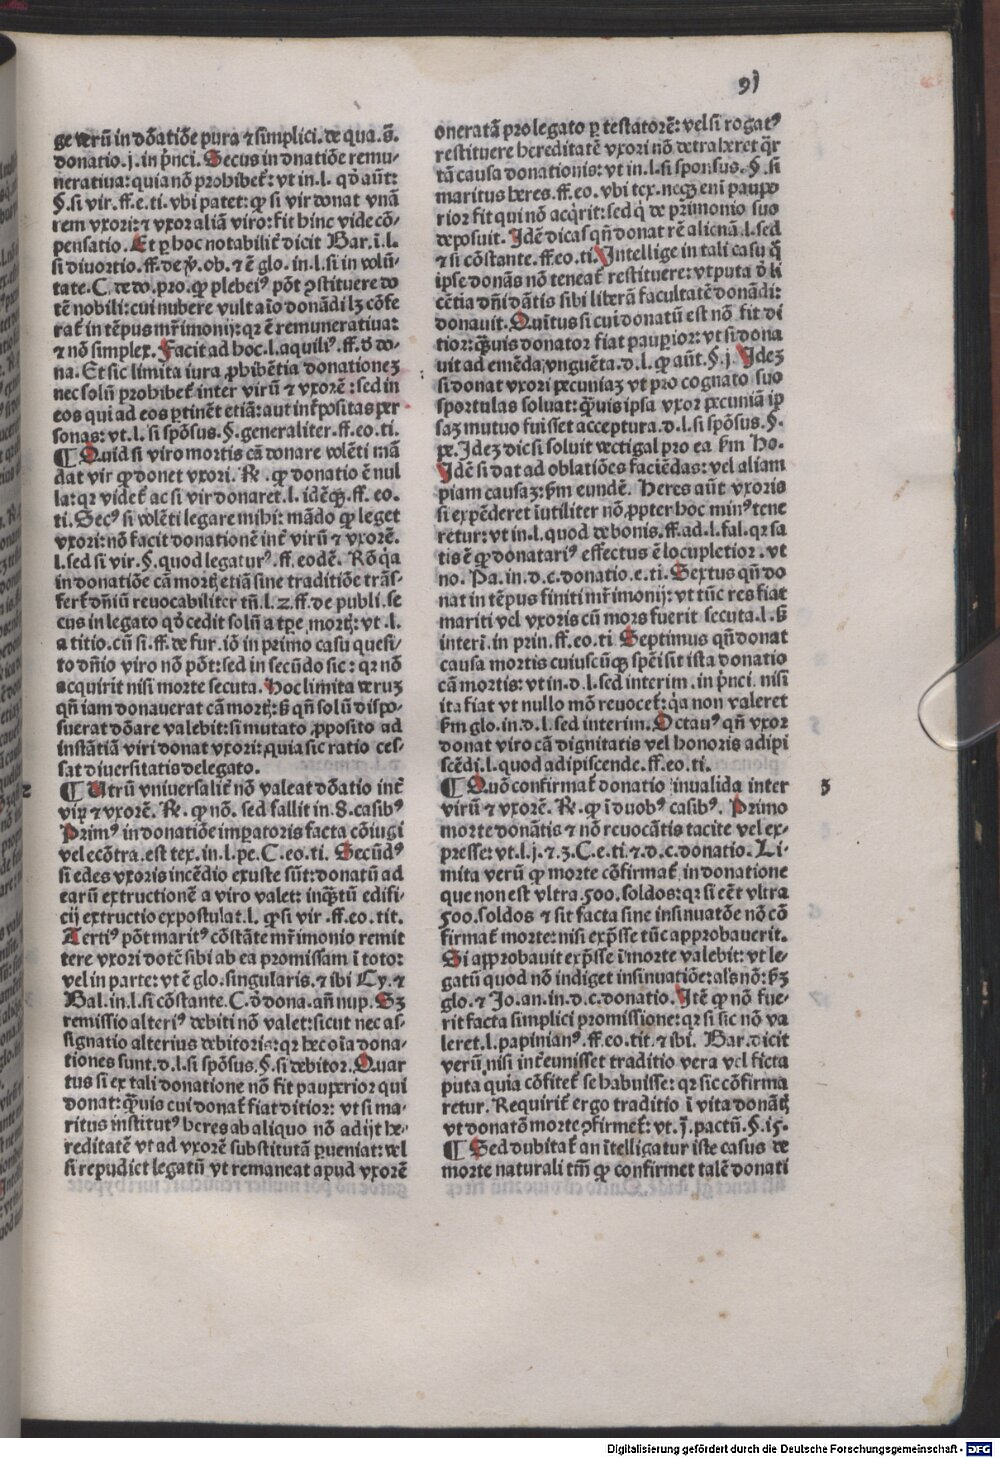 91
ge verū in dōatiōe pura ⁊ simplici. de qua. s̄.
donatio. j. in pͥnci. Secus in dnatiōe remu-
neratiua: quia nō prohibet᷑: vt in. l. qd̓ aūt:
§. si vir. ff. e. ti. vbi patet: ꝙ si vir donat vnā
rem vxori: ⁊ vxor aliā viro: fit hinc vide cō-
pensatio. Et ꝑ hoc notabilit̓ dicit Bar. ī. l.
si diuortio. ff. de v̓. ob. ⁊ ē glo. in. l. si in volū-
tate. C. de do. pro. ꝙ plebeiꝰ pōt ꝯstituere do
tē nobili: cui nubere vult aīo donādi lꝫ cōfe
rat̓ in tēpus mr̄imonij: qꝛ ē remuneratiua:
⁊ nō simplex. Facit ad hoc. l. aquiliꝰ. ff. d̓ do-
na. Et sic limita iura ꝓhibētia donationeꝫ
nec solū prohibet̓ inter virū ⁊ vxorē: sed in
eos qui ad eos ꝑtinēt etiā: aut int̓positas per
sonas: vt. l. si spōsus. §. generaliter. ff. eo. ti.
¶ Quid si viro mortis cā donare volēti mā
dat vir ꝙ donet vxori. R̄. ꝙ donatio ē nul
la: qꝛ videt̓ ac si vir donaret. l. idēqꝫ. ff. eo.
ti. Secꝰ si volēti legare mihi: mādo ꝙ leget
vxori: nō facit donationē int̓ virū ⁊ vxorē.
l. sed si vir. §. quod legaturꝰ. ff. eodē. Rō qͥa
in donatiōe cā mortꝭ etiā sine traditiōe trās-
fert̓ dn̄iū reuocabiliter tn̄. l. 2. ff. de publi. se
cus in legato qd̓ cedit solū a tꝑe mortꝭ: vt. l.
a titio. cū si. ff. de fur. iō in primo casu quesi-
to dn̄io viro nō pōt: sed in secūdo sic: qꝛ nō
acquirit nisi morte secuta. Hoc limita veruꝫ
qn̄ iam donauerat cā mortꝭ: sꝫ qn̄ solū dispo-
suerat dōare valebit: si mutato ꝓposito ad
instātiā viri donat vxori: quia sic ratio ces-
sat diuersitatis delegato.
2
¶ Utrū vniuersalit̓ nō valeat dōatio int̓
virꝫ ⁊ vxorē. R̄. ꝙ nō. sed fallit in. 8. casibꝰ
Primꝰ in donatiōe imꝑatoris facta cōiugi
vel ecōtra. est tex. in. l. pe. C. eo. ti. Secūdꝰ
si edes vxoris incēdio exuste sūt: donatū ad
earū extructionē a viro valet: inqͣtū edifi-
cij extructio expostulat. l. ꝙ si vir. ff. eo. tit.
Tertiꝰ pōt maritꝰ cōstāte mr̄imonio remit
tere vxori dotē sibi ab ea promissam ī toto:
vel in parte: vt ē glo. singularis. ⁊ ibi Cy. ⁊
Bal. in. l. si cōstante. C. d̓ dona. an̄ nup. Sꝫ
remissio alteriꝰ debiti nō valet: sicut nec as-
signatio alterius debitoris: qꝛ hec oīa dona-
tiones sunt. d. l. si spōsus. §. si debitor. Quar
tus si ex tali donatione nō fit pauꝑior qui
donat: qͣuis cui donat̓ fiat ditior: vt si ma-
ritus institutꝰ heres ab aliquo nō adijt he-
reditatē vt ad vxorē substitutā ꝑueniat: vel
si repudiet legatū vt remaneat apud vxorē
oneratā pro legato ꝑ testatorē: vel si rogatꝰ
restituere hereditatē vxori nō detraheret qͣr
tā causa donationis: vt in. l. si sponsus. §. si
maritus heres. ff. eo. vbi tex. neqꝫ enī paupe
rior fit qui nō acqͥrit: sed qͥ de pr̄imonio suo
deposuit. Idē dicas qn̄ donat rē alienā. l. sed
⁊ si cōstante. ff. eo. ti. Intellige in tali casu qͥ
ipse donās nō teneat̓ restituere: vtputa d̓ li
cētia dn̄i dātis sibi liberā facultatē donādi:
donauit. Quītus si cui donatū est nō fit di
tior: qͣuis donator fiat pauꝑior: vt si dona
uit ad emēda vnguēta. d. l. ꝙ aūt. §. j. Ideꝫ
si donat vxori pecuniaꝫ vt pro cognato suo
sportulas soluat: qͣuis ipsa vxor pecuniā ip
saꝫ mutuo fuisset acceptura. d. l. si spōsus. §.
pe. Ideꝫ dic si soluit vectigal pro ea fm̄ Ho.
Idē si dat ad oblatiōes faciēdas: vel aliam
piam causaꝫ: fm̄ eundē. Heres aūt vxoris
si expēderet īutiliter nō ꝓpter hoc minꝰ tene
retur: vt in. l. quod de bonis. ff. ad. l. fal. qꝛ sa
tis ē ꝙ donatariꝰ effectus ē locupletior. vt
no. Pa. in. d. c. donatio. e. ti. Sextus qn̄ do
nat in tēpus finiti mr̄imonij: vt tūc res fiat
mariti vel vxoris cū mors fuerit secuta. l. sꝫ
interī. in prin. ff. eo. ti Septimus qn̄ donat
causa mortis cuiuscūqꝫ spēi sit ista donatio
cā mortis: vt in. d. l. sed interim. in pͥnci. nisi
ita fiat vt nullo mō reuocet̓: qͥa non valeret
fm̄ glo. in. d. l. sed interim. Octauꝰ qn̄ vxor
donat viro cā dignitatis vel honoris adipi
scēdi. l. quod adipiscende. ff. eo. ti.
3
¶ Quō confirmat̓ donatio inualida inter
virū ⁊ vxorē. R̄. ꝙ ī duobꝰ casibꝰ. Primo
morte donātis ⁊ nō reuocātis tacite vel ex-
presse: vt. l. j. ⁊ 3. C. e. ti. ⁊ d. c. donatio. Li-
mita verū ꝙ morte cōfirmat̓ in donatione
que non est vltra. 500. soldos: qꝛ si eēt vltra
500. soldos ⁊ sit facta sine insinuatōe nō cō
firmat̓ morte: nisi exp̄sse tūc approbauerit.
Si approbauit exp̄sse ī morte valebit: vt le-
gatū quod nō indiget insinuatiōe: als̄ nō: fꝫ
glo. ⁊ Jo. an. in. d. c. donatio. Itē ꝙ nō fue-
rit facta simplici promissione: qꝛ si sic nō va
leret. l. papinianꝰ. ff. eo. tit. ⁊ ibi. Bar. dicit
verū nisi int̓euenisset traditio vera vel ficta
puta quia cōfitet̓ se habuisse: qꝛ sic cōfirma
retur. Requirit̓ ergo traditio ī vita donātꝭ
vt donatō morte ꝯfirmet̓: vt. j̄. pactū. §. 15.
¶ Sed dubitat̓ an ītelligatur iste casus de
morte naturali tm̄ ꝙ confirmet talē donati
Digitalisierung gefördert durch die Deutsche Forschungsgemeinschaft - DFG